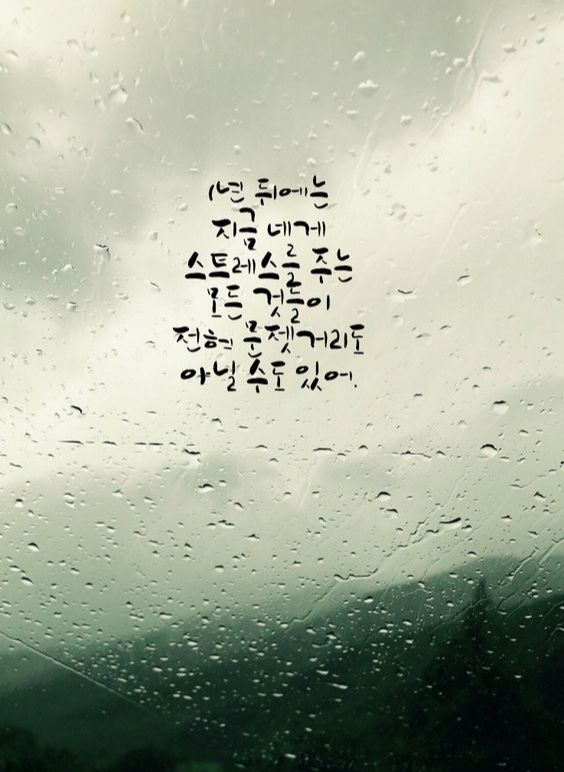 1년 뒤에는
지금 네게
스트레스를 주는
모든 것들이
전혀 문젯거리도
아닐 수도 있어.